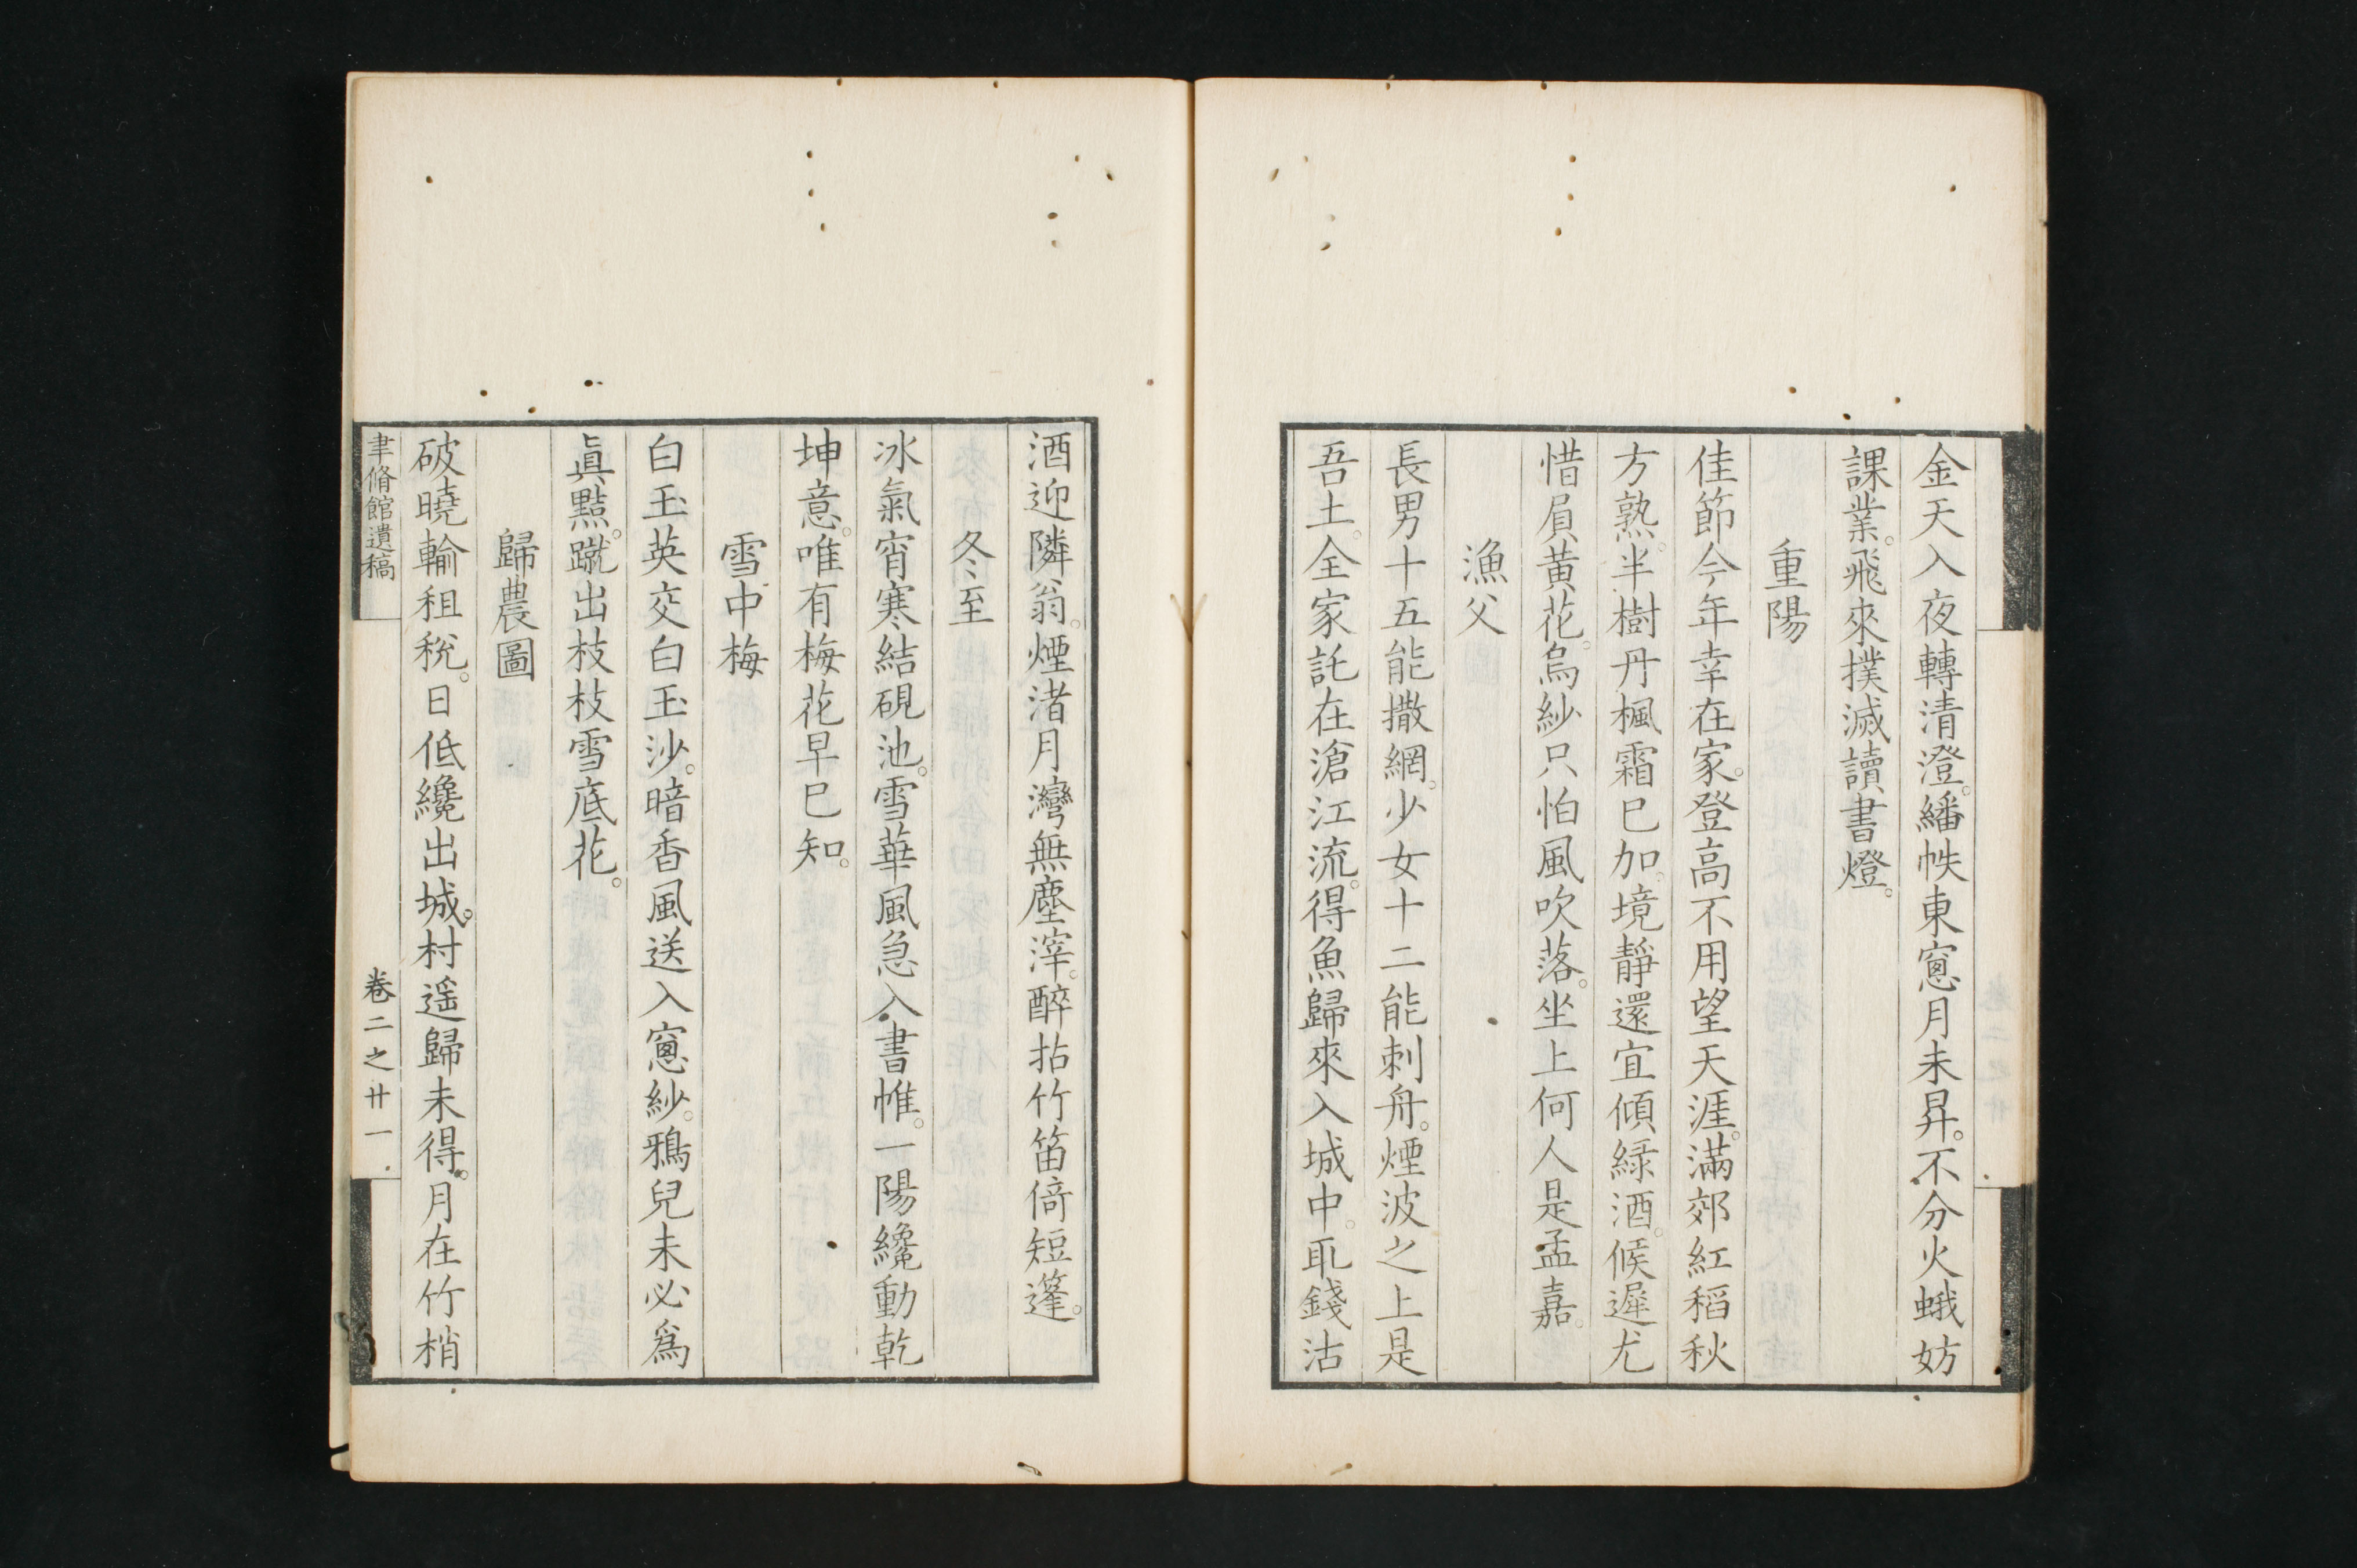 金天入夜轉清澄。繙帙東窻月未昇。不分火蛾妨
課業。飛來撲滅讀書燈。
重陽
佳節今年幸在家。登高不用望天涯。滿郊紅稻秋
方熟。半樹丹楓霜已加。境靜還宜傾綠酒。候遲尤
惜屓黄花。烏紗只怕風吹落。坐上何人是孟嘉。
漁父
長男十五能撒網。少女十二能刺舟。煙波之上是
吾土。全家託在滄江流。得魚歸來入城中。取錢沽
酒迎隣翁。煙渚月灣無塵滓。醉拈竹笛倚短篷。
冬至
冰氣宵寒結硯池。雪華風急入書帷。一陽纔動乾
坤意。唯有梅花早已知。
雪中梅
白玉英交白玉沙。暗香風送入窻紗。鴉兒未必爲
眞黠。蹴出枝枝雪底花。
歸農圖
破曉輸租稅。日低纔出城。村遥歸未得。月在竹梢
聿脩館遺稿
卷二之廿一